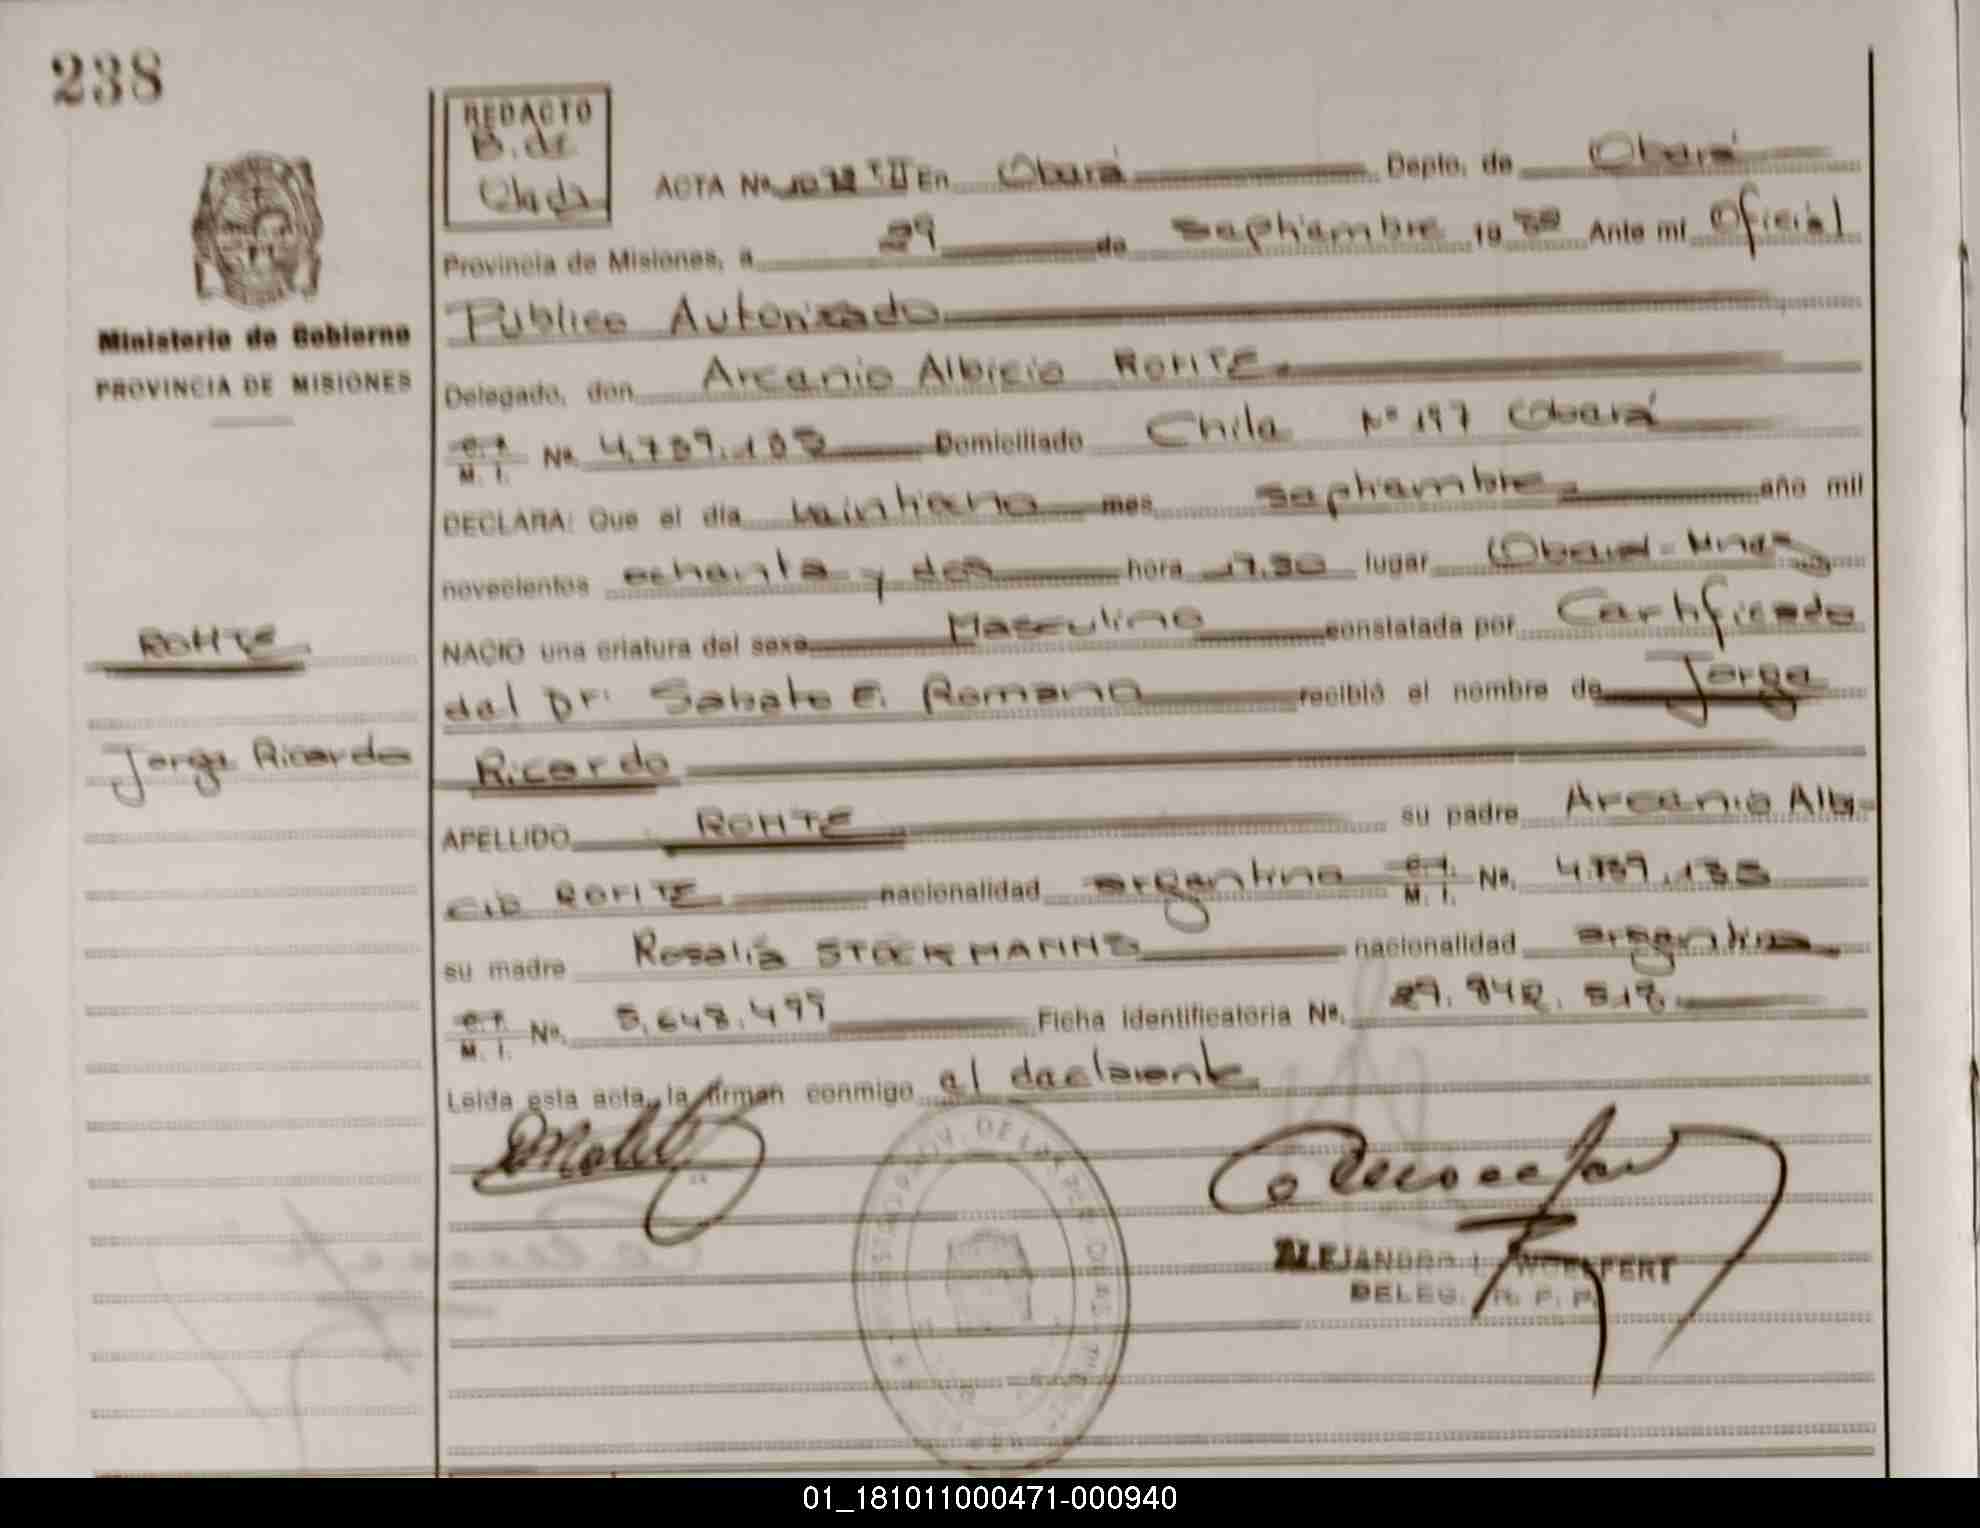 238
REDACTO
B. de
Olada
ACTA Nº 1072 TII En Oberá Depto. de Oberá
Provincia de Misiones, a 29 de septiembre 1982 Ante mí Oficial
Público Autorizado
Delegado, don Arcenio Albicio ROHTE.
Ministerio de Gobierno
PROVINCIA DE MISIONES
C. I. M. I. Nº Domiciliado Chile Nº 197 Oberá
DECLARA: Que el día veintiuno mes septiembre año mil
novecientos ochenta y dos hora 17.30 lugar Oberá - Mnes
NACIO una criatura del sexo Masculino constatada por Certificado
del Dr. Sabato E. Romano recibió el nombre de Jorge
Ricardo
ROHTE
Jorge Ricardo
APELLIDO ROHTE su padre Arcenio Albi-
cio ROHTE nacionalidad argentina C. I. M. I. Nº.
su madre Rosalia STOCKMANNS nacionalidad argentina
C. I. M. I. Nº. 5.648.499 Ficha identificatoria Nº. 29.842.518
Leída esta acta, la firman conmigo el declarante
ALEJANDRO L. WOELFERT
DELEG. R. P. P.
01_181011000471-000940